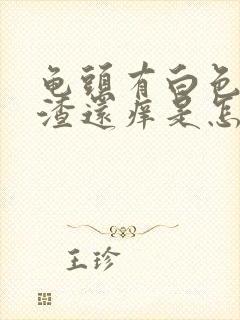 龟头有白色
渣还痒是怎
王珍